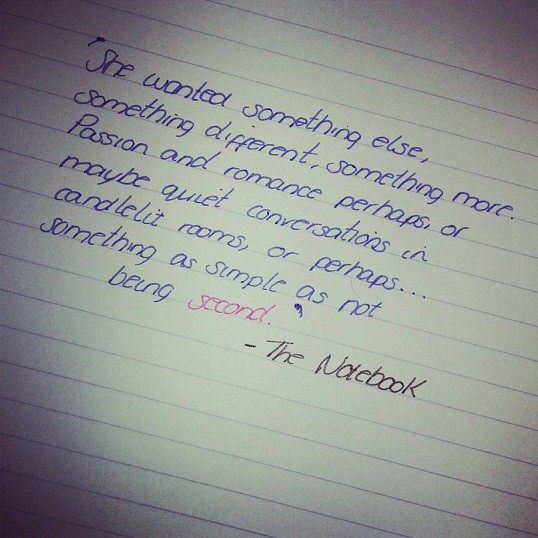 "She wanted something else,
something different, something more.
Passion and romance perhaps, or
maybe quiet conversations in
candlelit rooms, or perhaps...
something as simple as not
being second."
- The Notebook